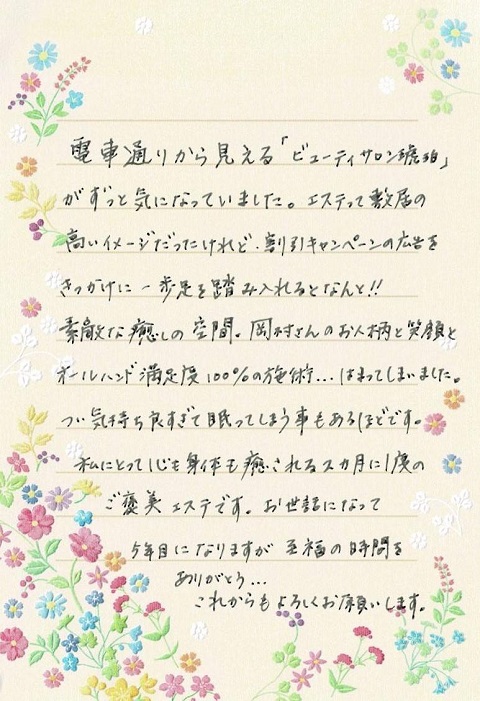 電車通りから見える「ビューティサロン琥珀」
がずっと気になっていました。エステって敷居の
高いイメージだったけれど、割引キャンペーンの広告を
きっかけに一歩足を踏み入れるとなんと!!
素敵な癒しの空間。岡村さんのお人柄と笑顔と
オールハンド満足度100%の施術...はまってしまいました。
つい気持ち良すぎて眠ってしまう事もあるほどです。
私にとって心も身体も癒されるスカ月に1度の
ご褒美エステです。お世話になって
5年目になりますが至福の時間を
ありがとう...
これからもよろしくお願いします。